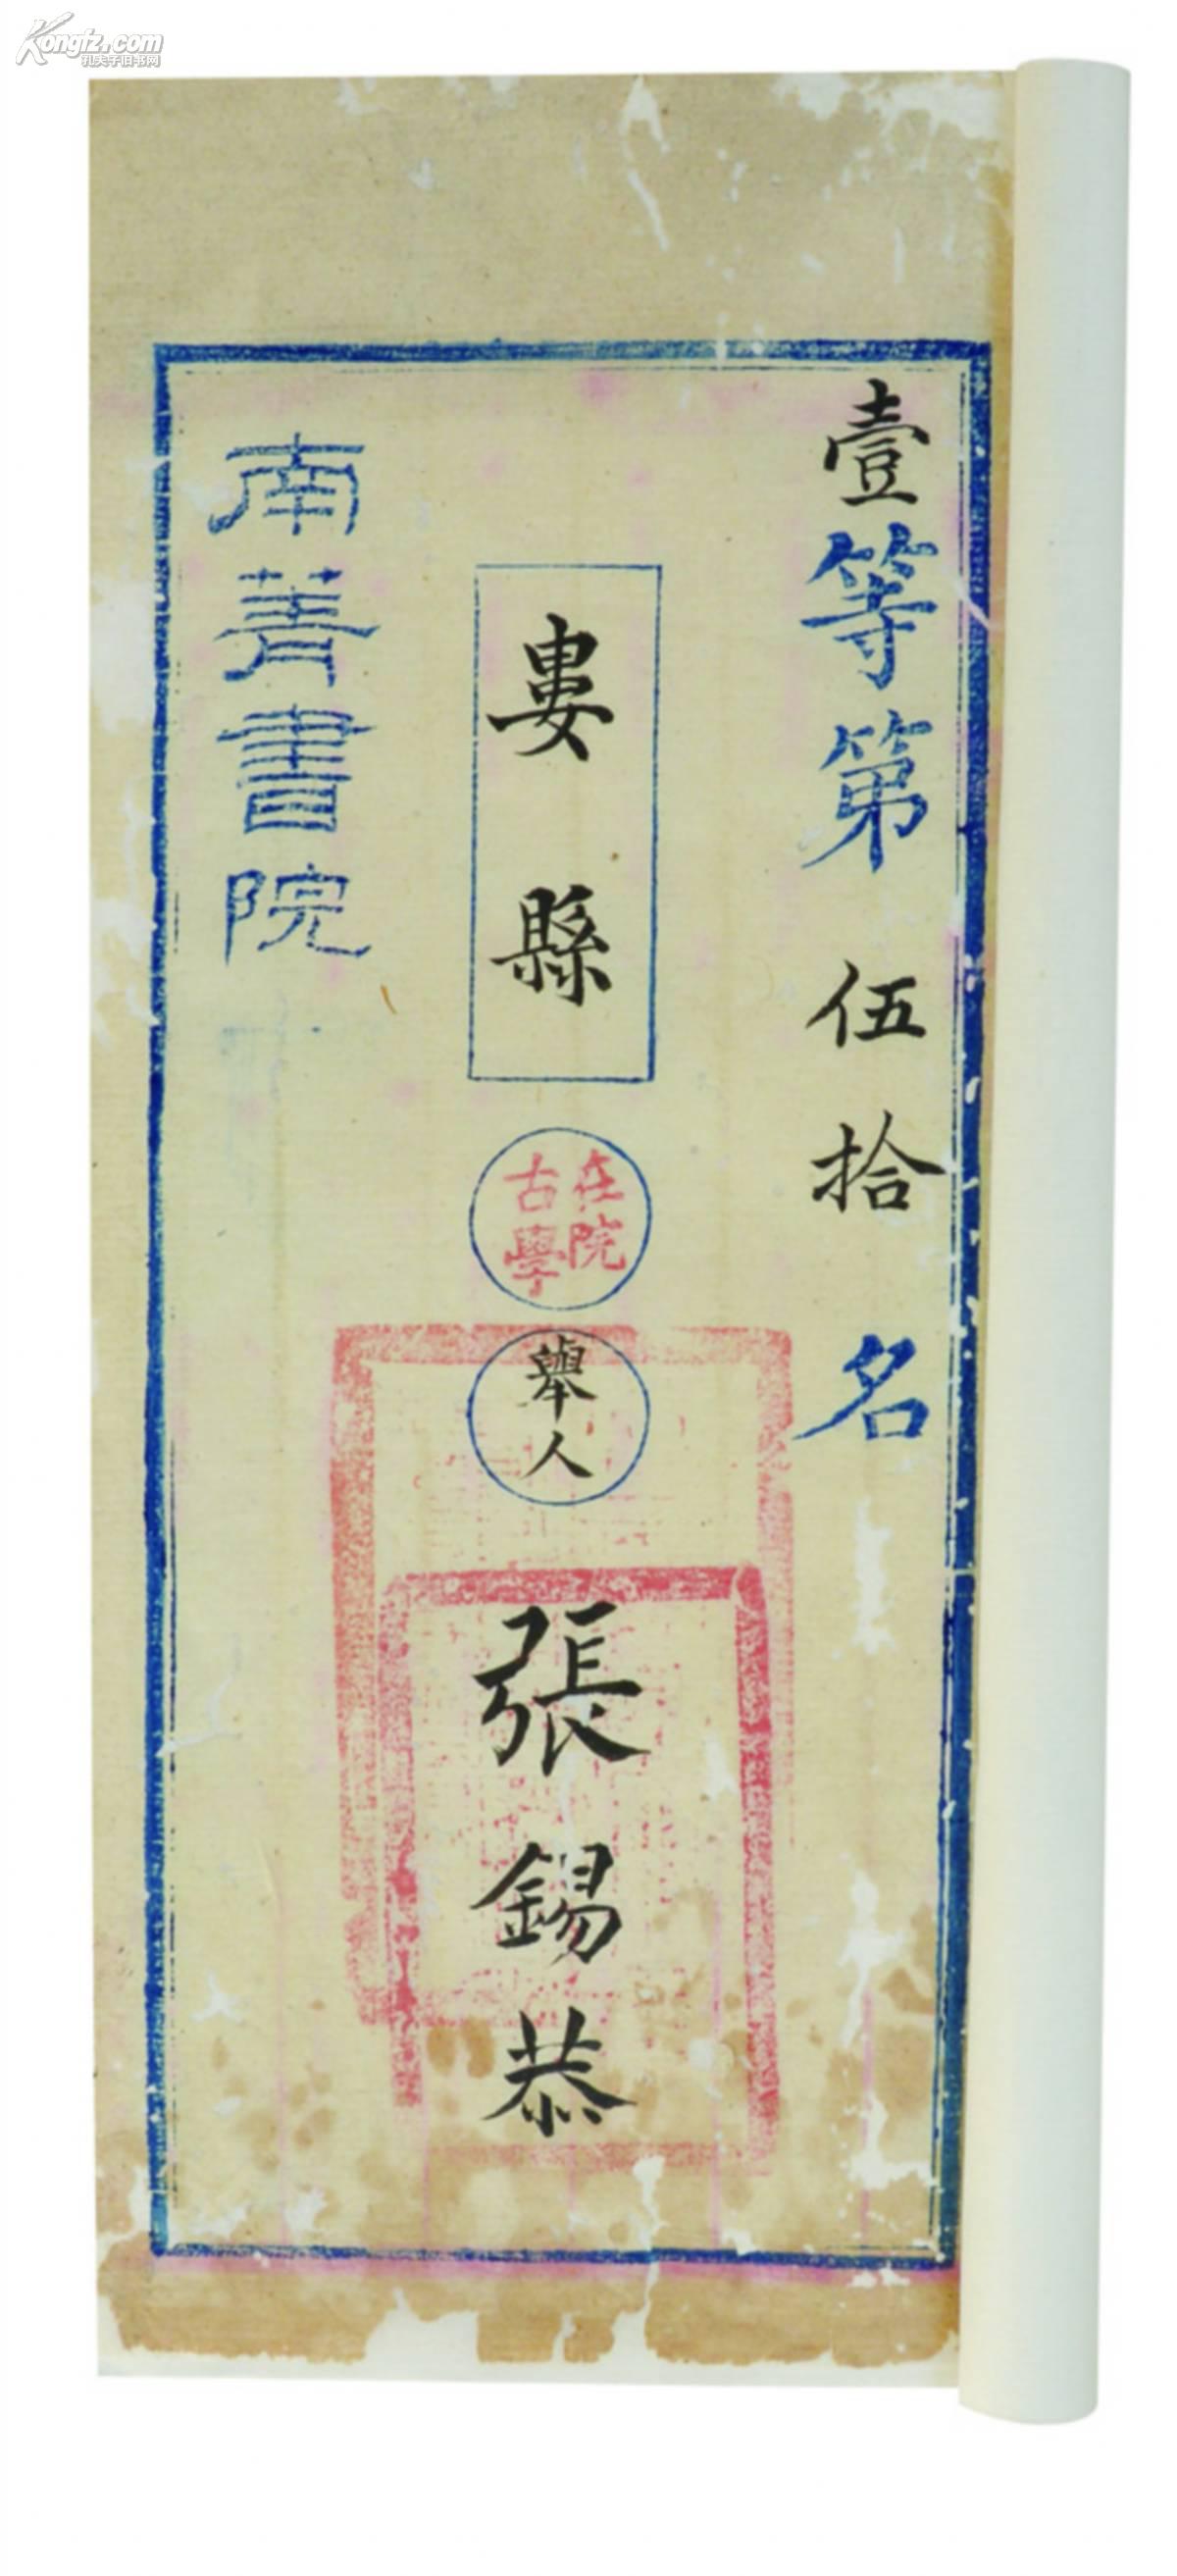 Kongfz.com
孔夫子旧书网
壹等第伍拾名
婁縣
在院
古學
舉人
張錫恭
南菁書院